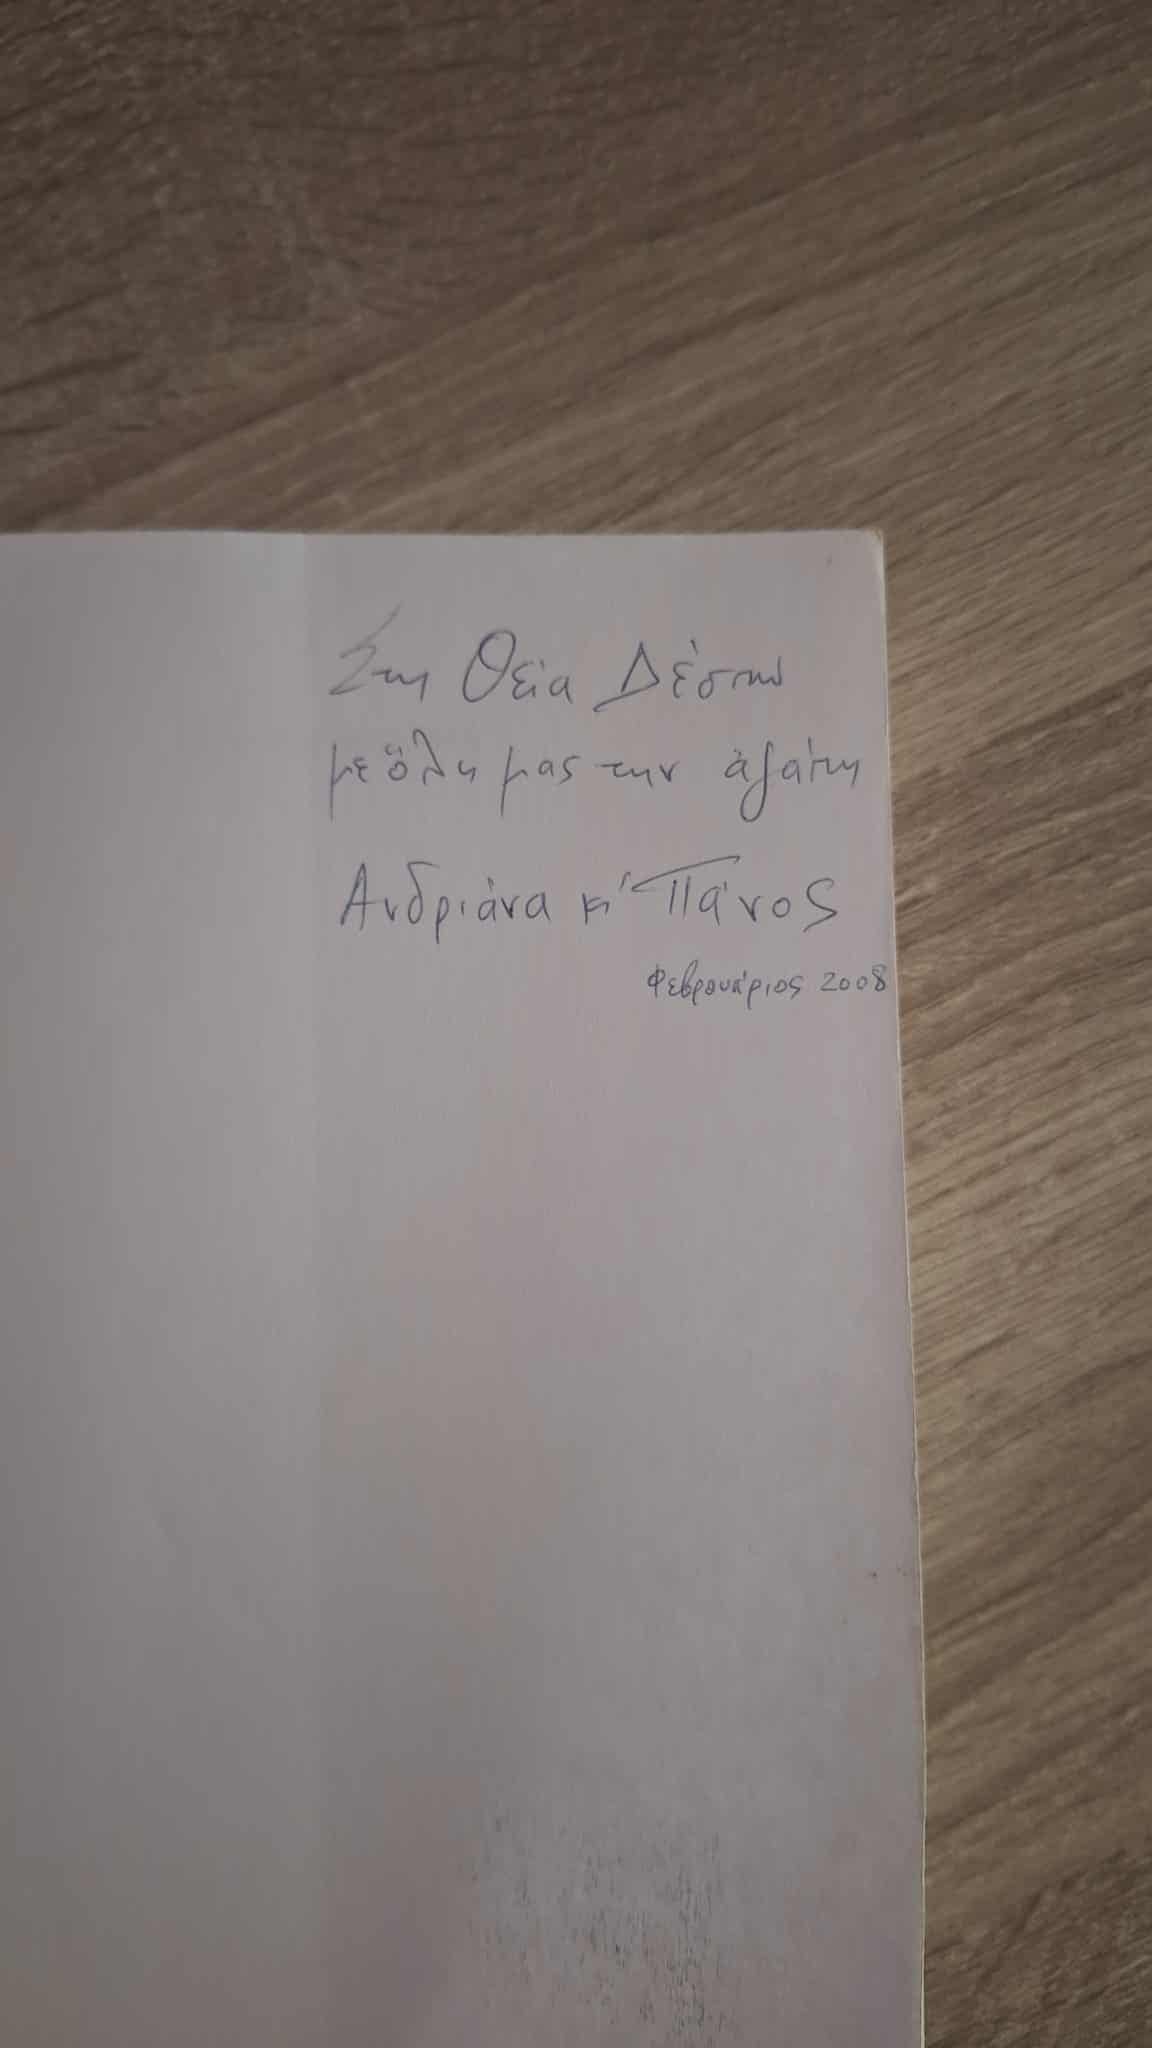 Στη Θεία Δέσπω
με ὅλη μας την ἀγάπη
Ανδριάνα κι' Πάνος
Φεβρουάριος 2008